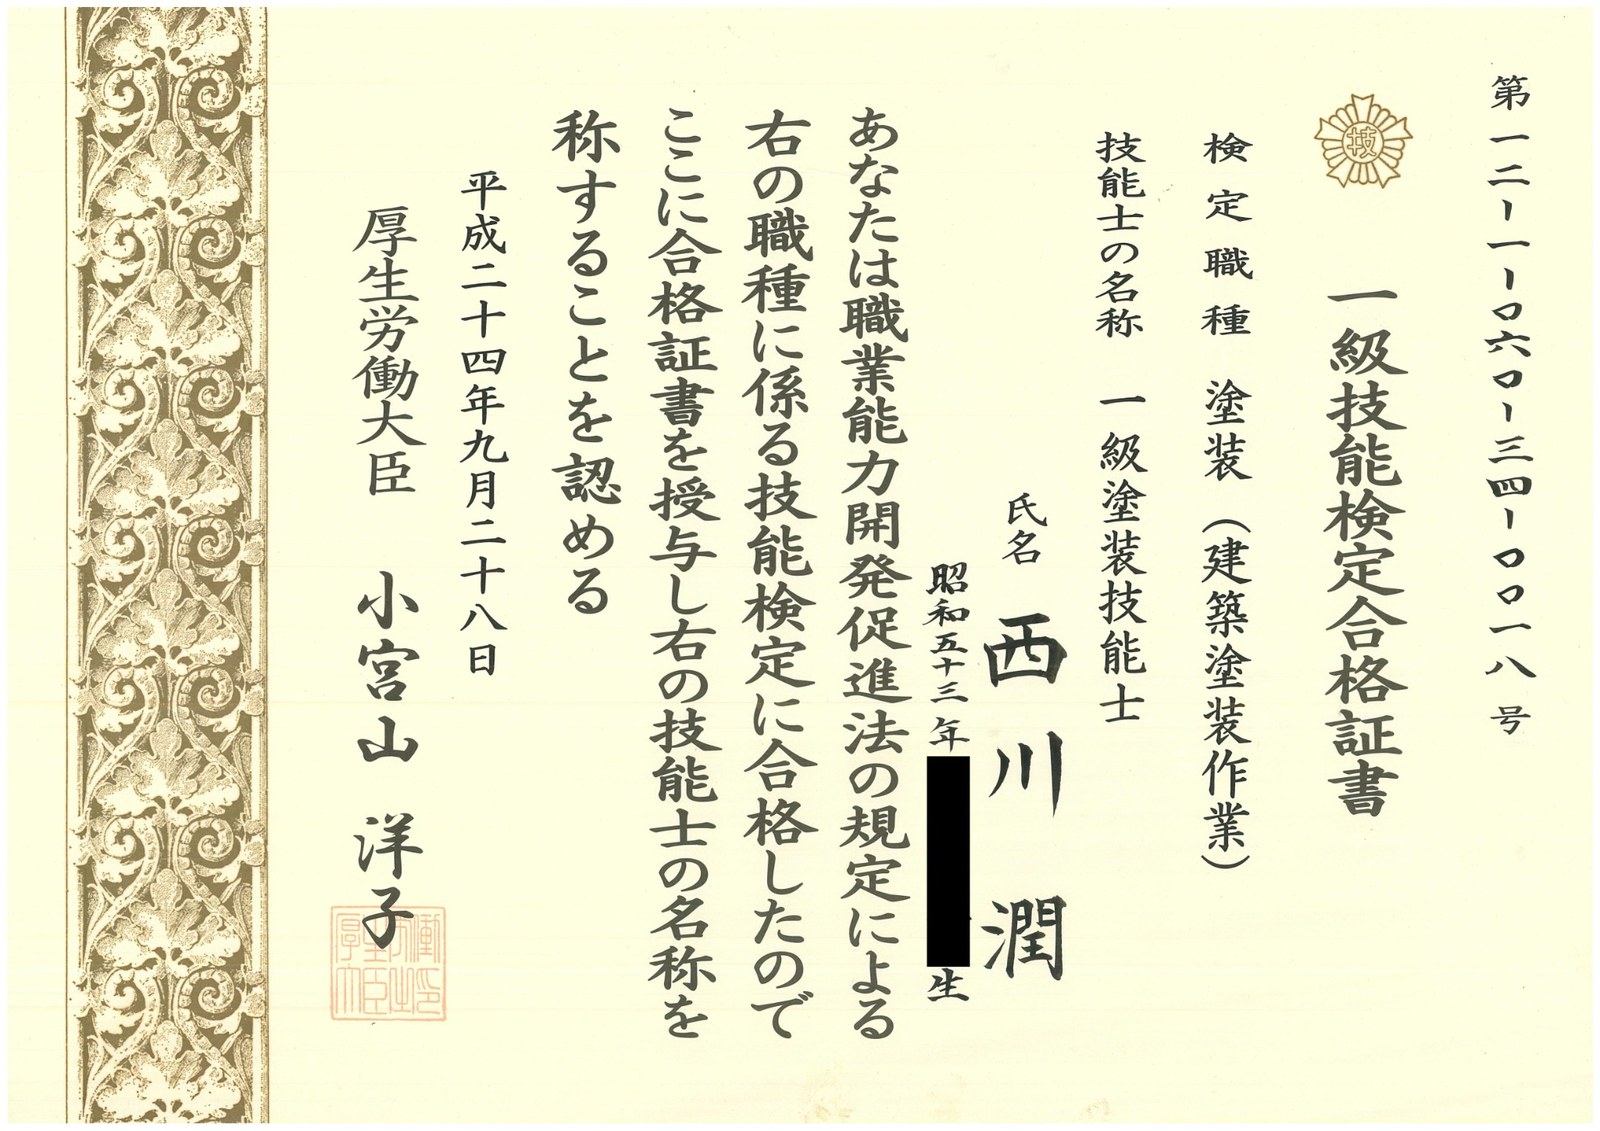 第一二-一-〇六〇-三四-〇〇一八号
技
一級技能検定合格証書
検定職種 塗装（建築塗装作業）
技能士の名称 一級塗装技能士
氏名 西川 潤
昭和五十三年 生
あなたは職業能力開発促進法の規定による
右の職種に係る技能検定に合格したので
ここに合格証書を授与し右の技能士の名称を
称することを認める
平成二十四年九月二十八日
厚生労働大臣 小宮山 洋子